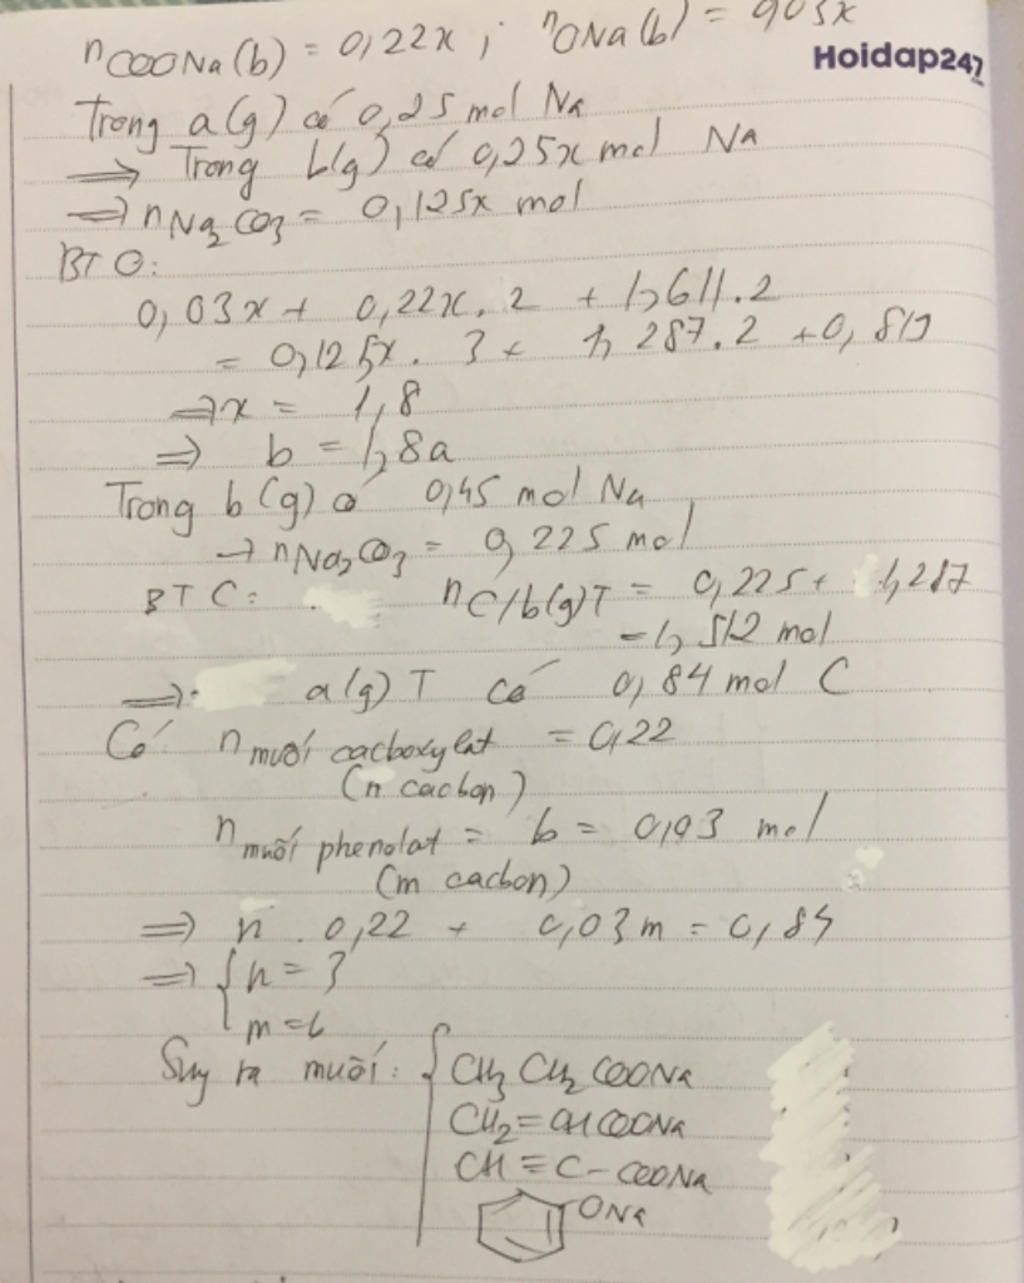 nCOONa(b) = 0,22x ; nONa(b) = 0,03x
Hoidap247
Trong a(g) có 0,25 mol Na
=> Trong b(g) có 0,25x mol Na
=> nNa2CO3 = 0,125x mol
BT O:
0,03x + 0,22x.2 + 1,611.2
= 0,125x.3 + 1,287.2 + 0,819
=> x = 1,8
=> b = 1,8a
Trong b(g) có 0,45 mol Na
→ nNa2CO3 = 0,225 mol
BT C: nC/b(g)T = 0,225 + 1,287
= 1,512 mol
=> a(g) T Có 0,84 mol C
Có n muối cacboxylat = 0,22
(n cacbon)
n muối phenolat = b = 0,03 mol
(m cacbon)
=> n . 0,22 + 0,03m = 0,84
=> { n = 3
m = 6
Suy ra muối: { CH3CH2COONa
CH2=CHCOONa
CH≡C-COONa
ONa